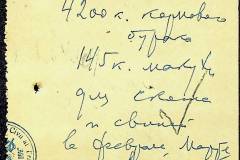 4200 к. кормового
бурака
145 к. макухи
для скота
и свиней
в феврале, марте
Civil af